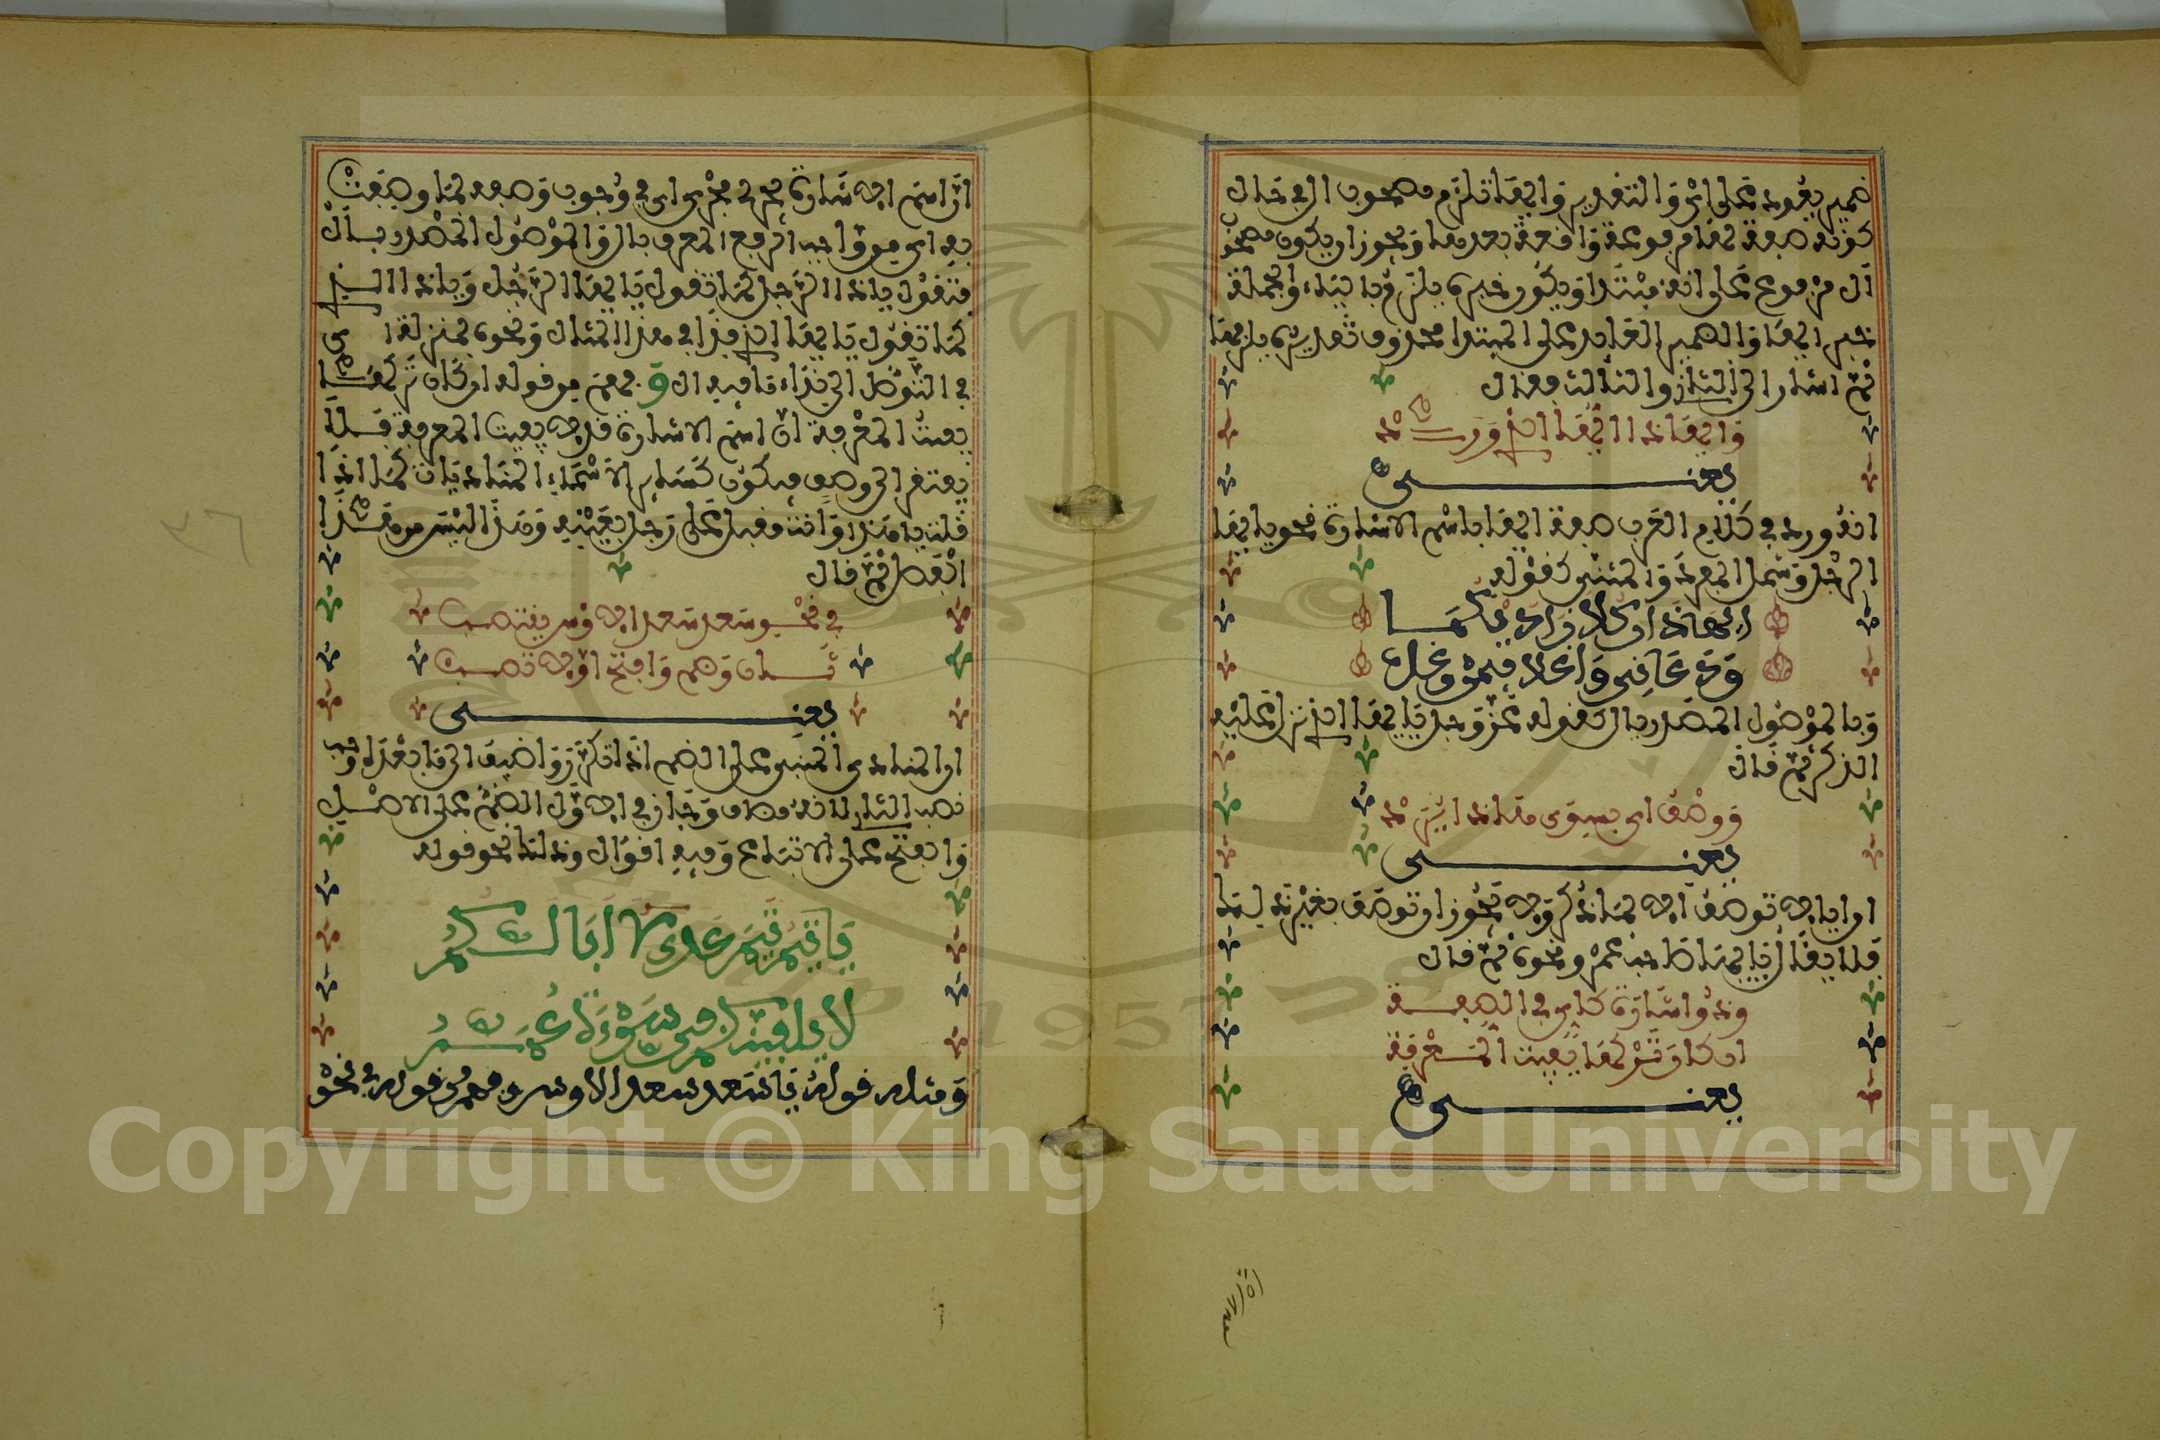 ضمير يعود على أي والتقدير وايها تلزم مصحوب ال في حال
كونه صفة لها مرفوعة واقعة بعدها ويجوز ان يكون مصحوب
ال مرفوع على انه مبتدا ويكون خبره يلزم بالياء والجملة
خبر ايها والضمير العايد على المبتدا محذوف تقديره يلزمها
ثم اشار الى الثاني والثالث فقال
وايها ذا ايها الذي ورد
يعني
انه ورد في كلام العرب صفة ايها باسم الاشارة نحو يا ايها
الرجل وشمل المفرد والمثنى كقوله
ايهاذان كلا زاديكما
ودعاني واغلا فيمن وغل
وبالموصول المصدر بال كقوله عز وجل يا ايها الذي نزل عليه
الذكر ثم قال
ووصف اي بسوى هذا يرد
يعني
ان ايا لا توصف الا بما ذكر ولا يجوز ان توصف بغير ذلك
فلا يقال يا ايها صاحب عمرو ونحوه ثم قال
وذو اشارة كاي في الصفة
ان كان تركها يفيت المعرفة
يعني
ان اسم الاشارة يجري مجرى اي في وجوب وصفه بما وصفت
به اي من واجب الرفع المعرف بال والموصول المصدر بال
فتقول يا ذا الرجل كما تقول يا ايها الرجل ويا ذا الذي
كما تقول يا ايها الذي فذا في هذا المثال ونحوه بمنزلة اي
في التوصل الى نداء ما فيه ال وفهم من قوله ان كان تركها
يفيت المعرفة ان اسم الاشارة قد لا يفيت المعرفة فلا
يفتقر الى وصف فيكون كساير الاسماء المناديات كما اذا
قلت يا هذا وانت مقبل على رجل بعينه وهذا ليس من هذا
الفصل ثم قال
في نحو سعد سعد الاوس ينتصب
ثان وضم وافتح اولا تصب
يعني
ان المنادى المبني على الضم اذا تكرر واضيف الى ما بعده وجب
نصب الثاني لانه مضاف وجاز في الاول الضم على الاصل
والفتح على الاتباع وفيه اقوال وذلك نحو قوله
يا تيم تيم عدي لا ابا لكم
لا يلقينكم في سوءة عمر
ومثله قوله يا سعد سعد الاوس وفهم من قوله في نحو
Copyright © King Saud University
1957